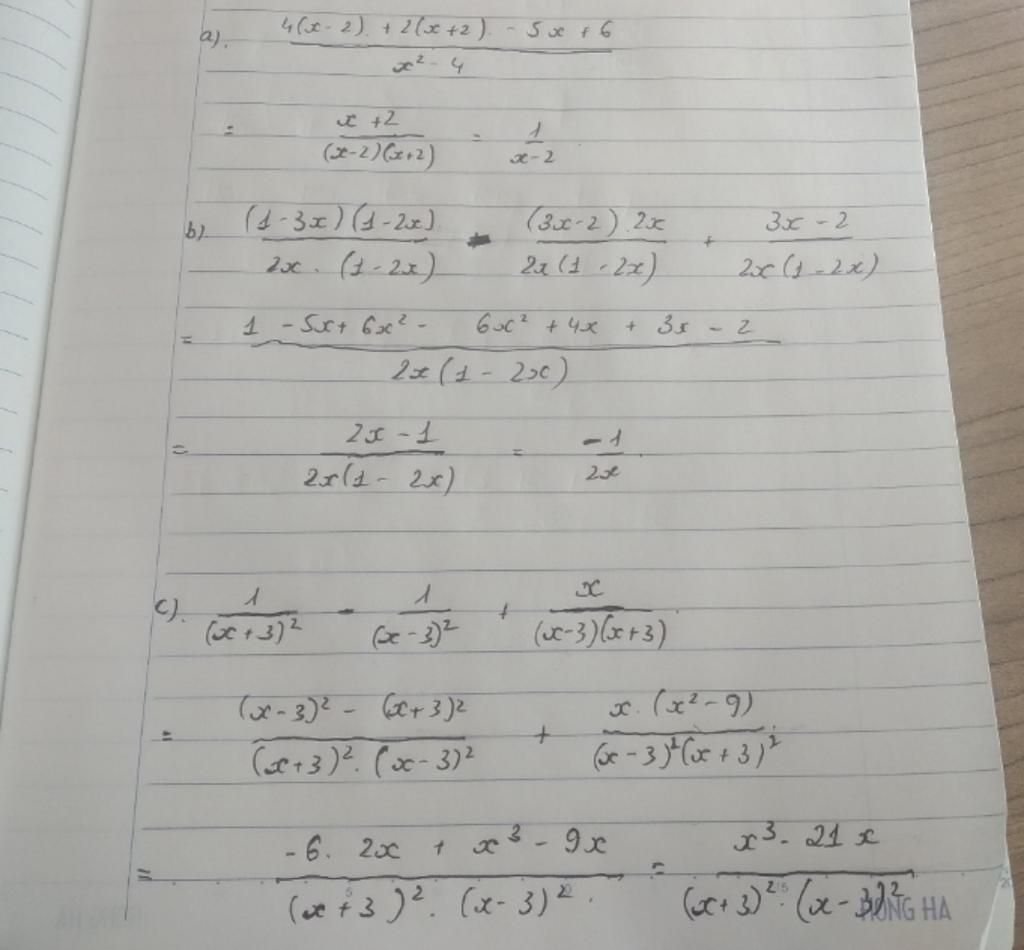 a). \frac{4(x-2) + 2(x+2) - 5x + 6}{x^2 - 4}
= \frac{x+2}{(x-2)(x+2)} = \frac{1}{x-2}
b). \frac{(1-3x)(1-2x)}{2x \cdot (1-2x)} - \frac{(3x-2) \cdot 2x}{2x(1-2x)} + \frac{3x-2}{2x(1-2x)}
= \frac{1 - 5x + 6x^2 - 6x^2 + 4x + 3x - 2}{2x(1-2x)}
= \frac{2x-1}{2x(1-2x)} = \frac{-1}{2x}
c). \frac{1}{(x+3)^2} - \frac{1}{(x-3)^2} + \frac{x}{(x-3)(x+3)}
= \frac{(x-3)^2 - (x+3)^2}{(x+3)^2 \cdot (x-3)^2} + \frac{x \cdot (x^2-9)}{(x-3)^2(x+3)^2}
= \frac{-6 \cdot 2x + x^3 - 9x}{(x+3)^2 \cdot (x-3)^2} = \frac{x^3 - 21x}{(x+3)^2 \cdot (x-3)^2}
HONG HA